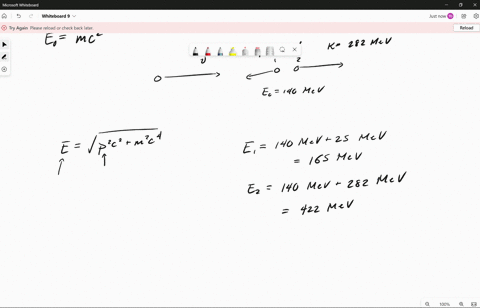 Microsoft Whiteboard
Whiteboard 9
Just now
Try Again Please reload or check back later.
Reload
E₀ = mc²
υ
1
2
K = 282 MeV
E₀ = 140 MeV
E = √p²c² + m²c⁴
E₁ = 140 MeV + 25 MeV
= 165 MeV
E₂ = 140 MeV + 282 MeV
= 422 MeV
100%